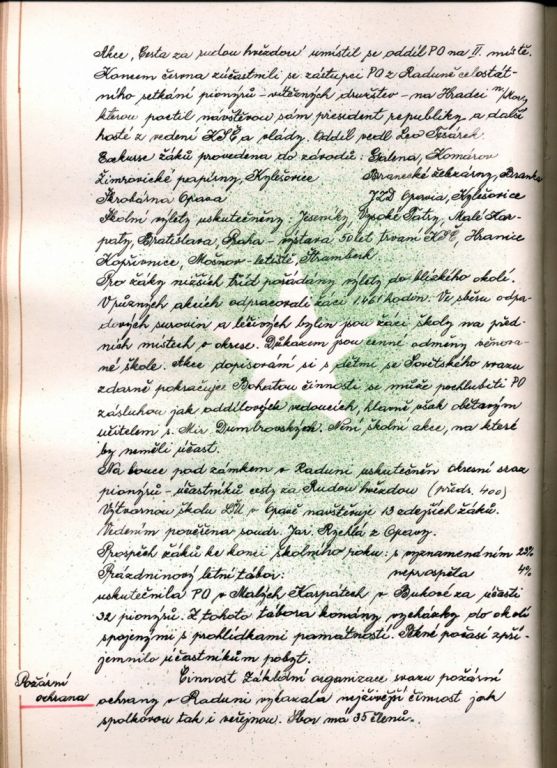 Akce „Cesta za rudou hvězdou" umístil se oddíl PO na II. místě.
Koncem června zúčastnili se zástupci PO z Raduně celostát-
ního setkání pionýrů – vítězných družstev – na Hradci n/Mor.,
kterou poctil návštěvou sám president republiky a další
hosté z vedení KSČ a vlády. Oddíl vedl Leo
Exkurse žáků provedena do závodů: Galena, Komárov
Žimrovické papírny, Kylešovice Branecké železárny, Branka
Škrobárna Opava JZD Opavia, Kylešovice
Školní výlety uskutečněny: Jeseníky, Vysoké Tatry, Malé Kar-
paty, Bratislava, Praha – výstava 50 let trvání KSČ, Hranice
Kopřivnice, Mošnov – letiště, Štramberk
Pro žáky nižších tříd pořádány výlety do blízkého okolí.
V různých akcích odpracovali žáci 1.461 hodin. Ve sběru odpa-
dových surovin a léčivých bylin jsou žáci školy na před-
ních místech v okrese. Důkazem jsou cenné odměny věnova-
né škole. Akce dopisování si s dětmi ze Sovětského svazu
zdárně pokračuje. Bohatou činností se může pochlubiti PO
zásluhou jak oddílových vedoucích, hlavně však obětavým
učitelem s. Mir. Dumbrovským. Není školní akce, na které
by neměli účast.
Na louce pod zámkem v Raduni uskutečněn okresní sraz
pionýrů – účastníků cesty za Rudou hvězdou (předs. 400)
Výtvarnou školu LŠU v Opavě navštěvuje 13 zdejších žáků.
Vedením pověřena soudr. Jar. Rychlá z Opavy.
Prospěch žáků ke konci školního roku: s vyznamenáním 22%
Prázdninový letní tábor: neprospěla 4%
uskutečnila PO v Malých Karpatech v Bukové za účasti
32 pionýrů. Z tohoto tábora konány vycházky do okolí
spojenými s prohlídkami památností. Pěkné počasí zpří-
jemnilo účastníkům pobyt.
Požární
ochrana
Činnost Základní organizace svazu požární
ochrany v Raduni vykazala nejživější činnost jak
spolkovou tak i veřejnou. Sbor má 35 členů.